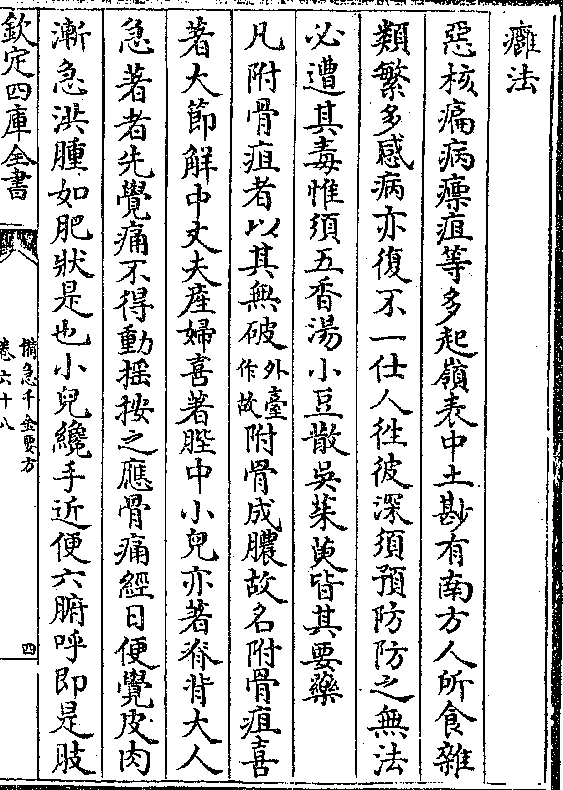 癰法
惡核㾓病瘭疽等多起嶺表中土尠有南方人所食雜
類繁多感病亦復不一仕人往彼深須預防防之無法
必遭其毒惟須五香湯小豆散吳茱萸皆其要藥
凡附骨疽者以其無破外臺作故附骨成膿故名附骨疽喜
著大節解中丈夫産婦喜著䏶中小兒亦著脊背大人
急著者先覺痛不得動揺按之應骨痛經日便覺皮肉
漸急洪腫如肥狀是也小兒纔手近便大腑呼即是肢
欽定四庫全書
備急千金要方
卷六十八
四